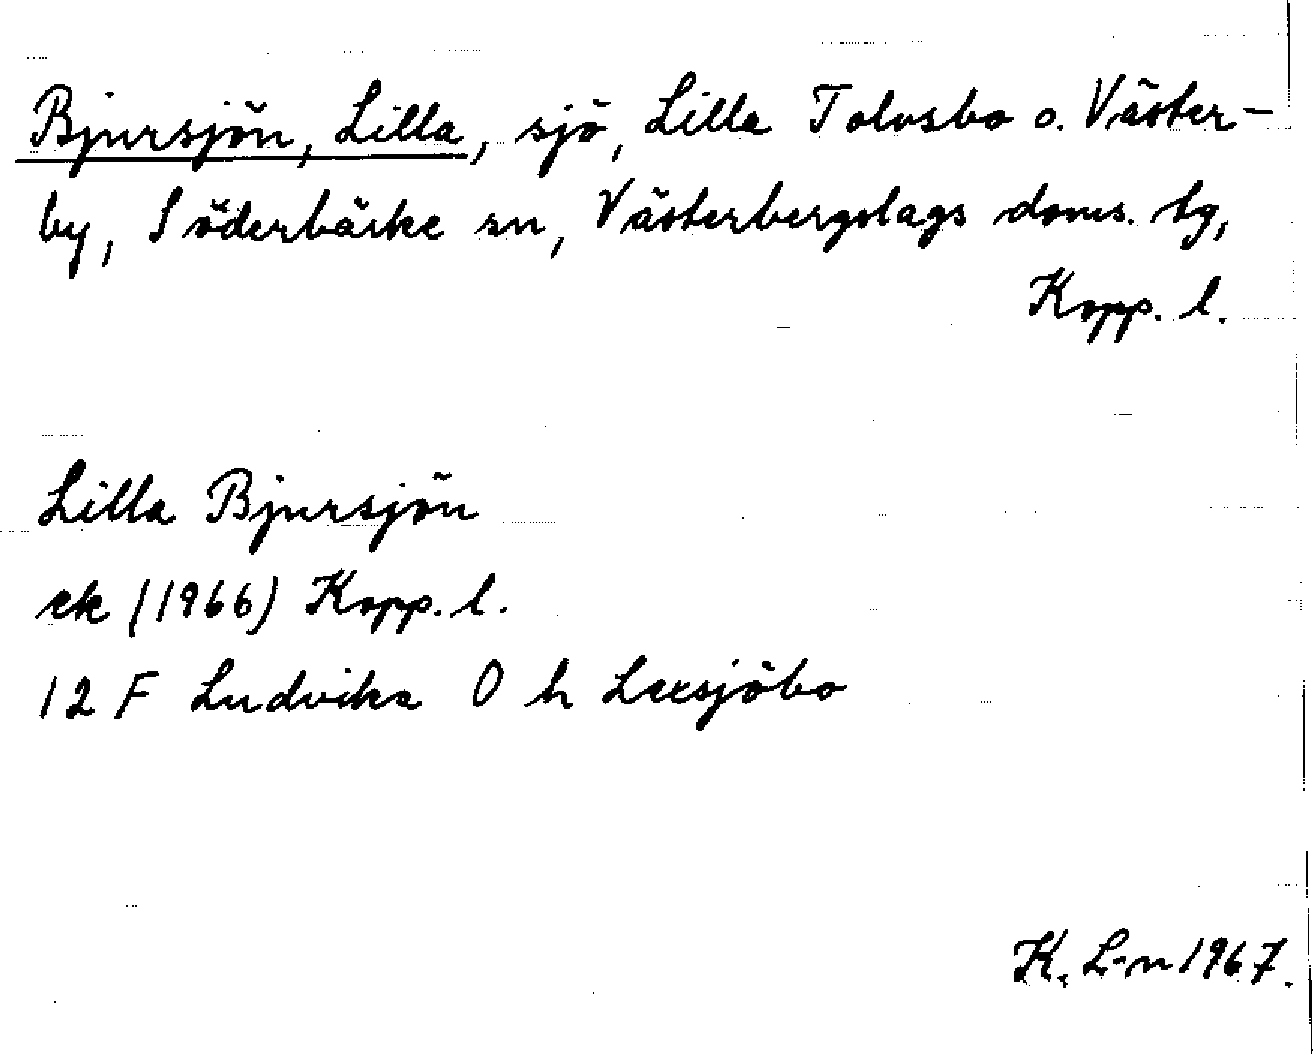 Bjursjön, Lilla, sjö, Lilla Tolvsbo o. Väster-
by, Söderbärke sn, Västerbergslags doms. tg,
Kopp. l.
Lilla Bjursjön
ek (1966) Kopp. l.
12 F Ludvika O h Laxsjöbo
K. L-n 1967.